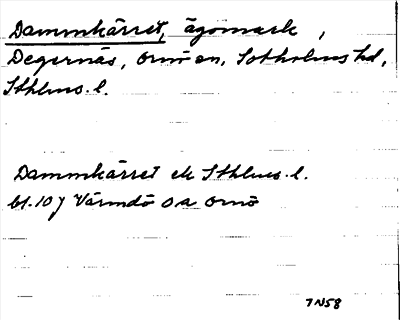 Dammkärret, ägomark,
Degernäs, Ornö sn, Sotholms hd,
Sthlms l.
Dammkärret ek Sthlms l.
bl. 107 Värmdö o a Ornö
7N58